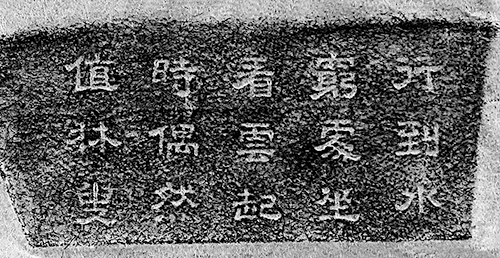 行到水
窮處坐
看雲起
時偶然
值林叟